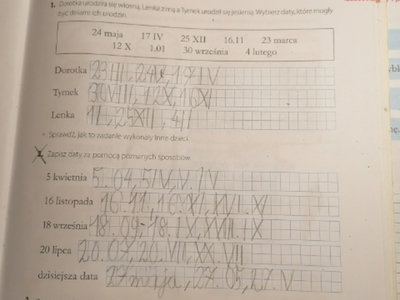 1. Dorotka urodziła się wiosną, Lenka zimą a Tymek urodził się jesienią. Wybierz daty, które mogły
być dniami ich urodzin.
24 maja 17 IV 25 XII 16.11 23 marca
12 X 1.01 30 września 4 lutego
Dorotka 23 III, 24 V, 17 IV
Tymek 30 VIII, 12 X, 16 XI
Lenka 1 I, 25 XII, 4 II
• Sprawdź, jak to zadanie wykonały inne dzieci.
2. Zapisz daty za pomocą poznanych sposobów.
5 kwietnia 5.04, 5 IV, V.IV
16 listopada 16.11, 16.XI, XVI.XI
18 września 18.09, 18.IX, XVIII.IX
20 lipca 20.07, 20.VII, XX.VII
dzisiejsza data 27 maja, 27.05, 27.V